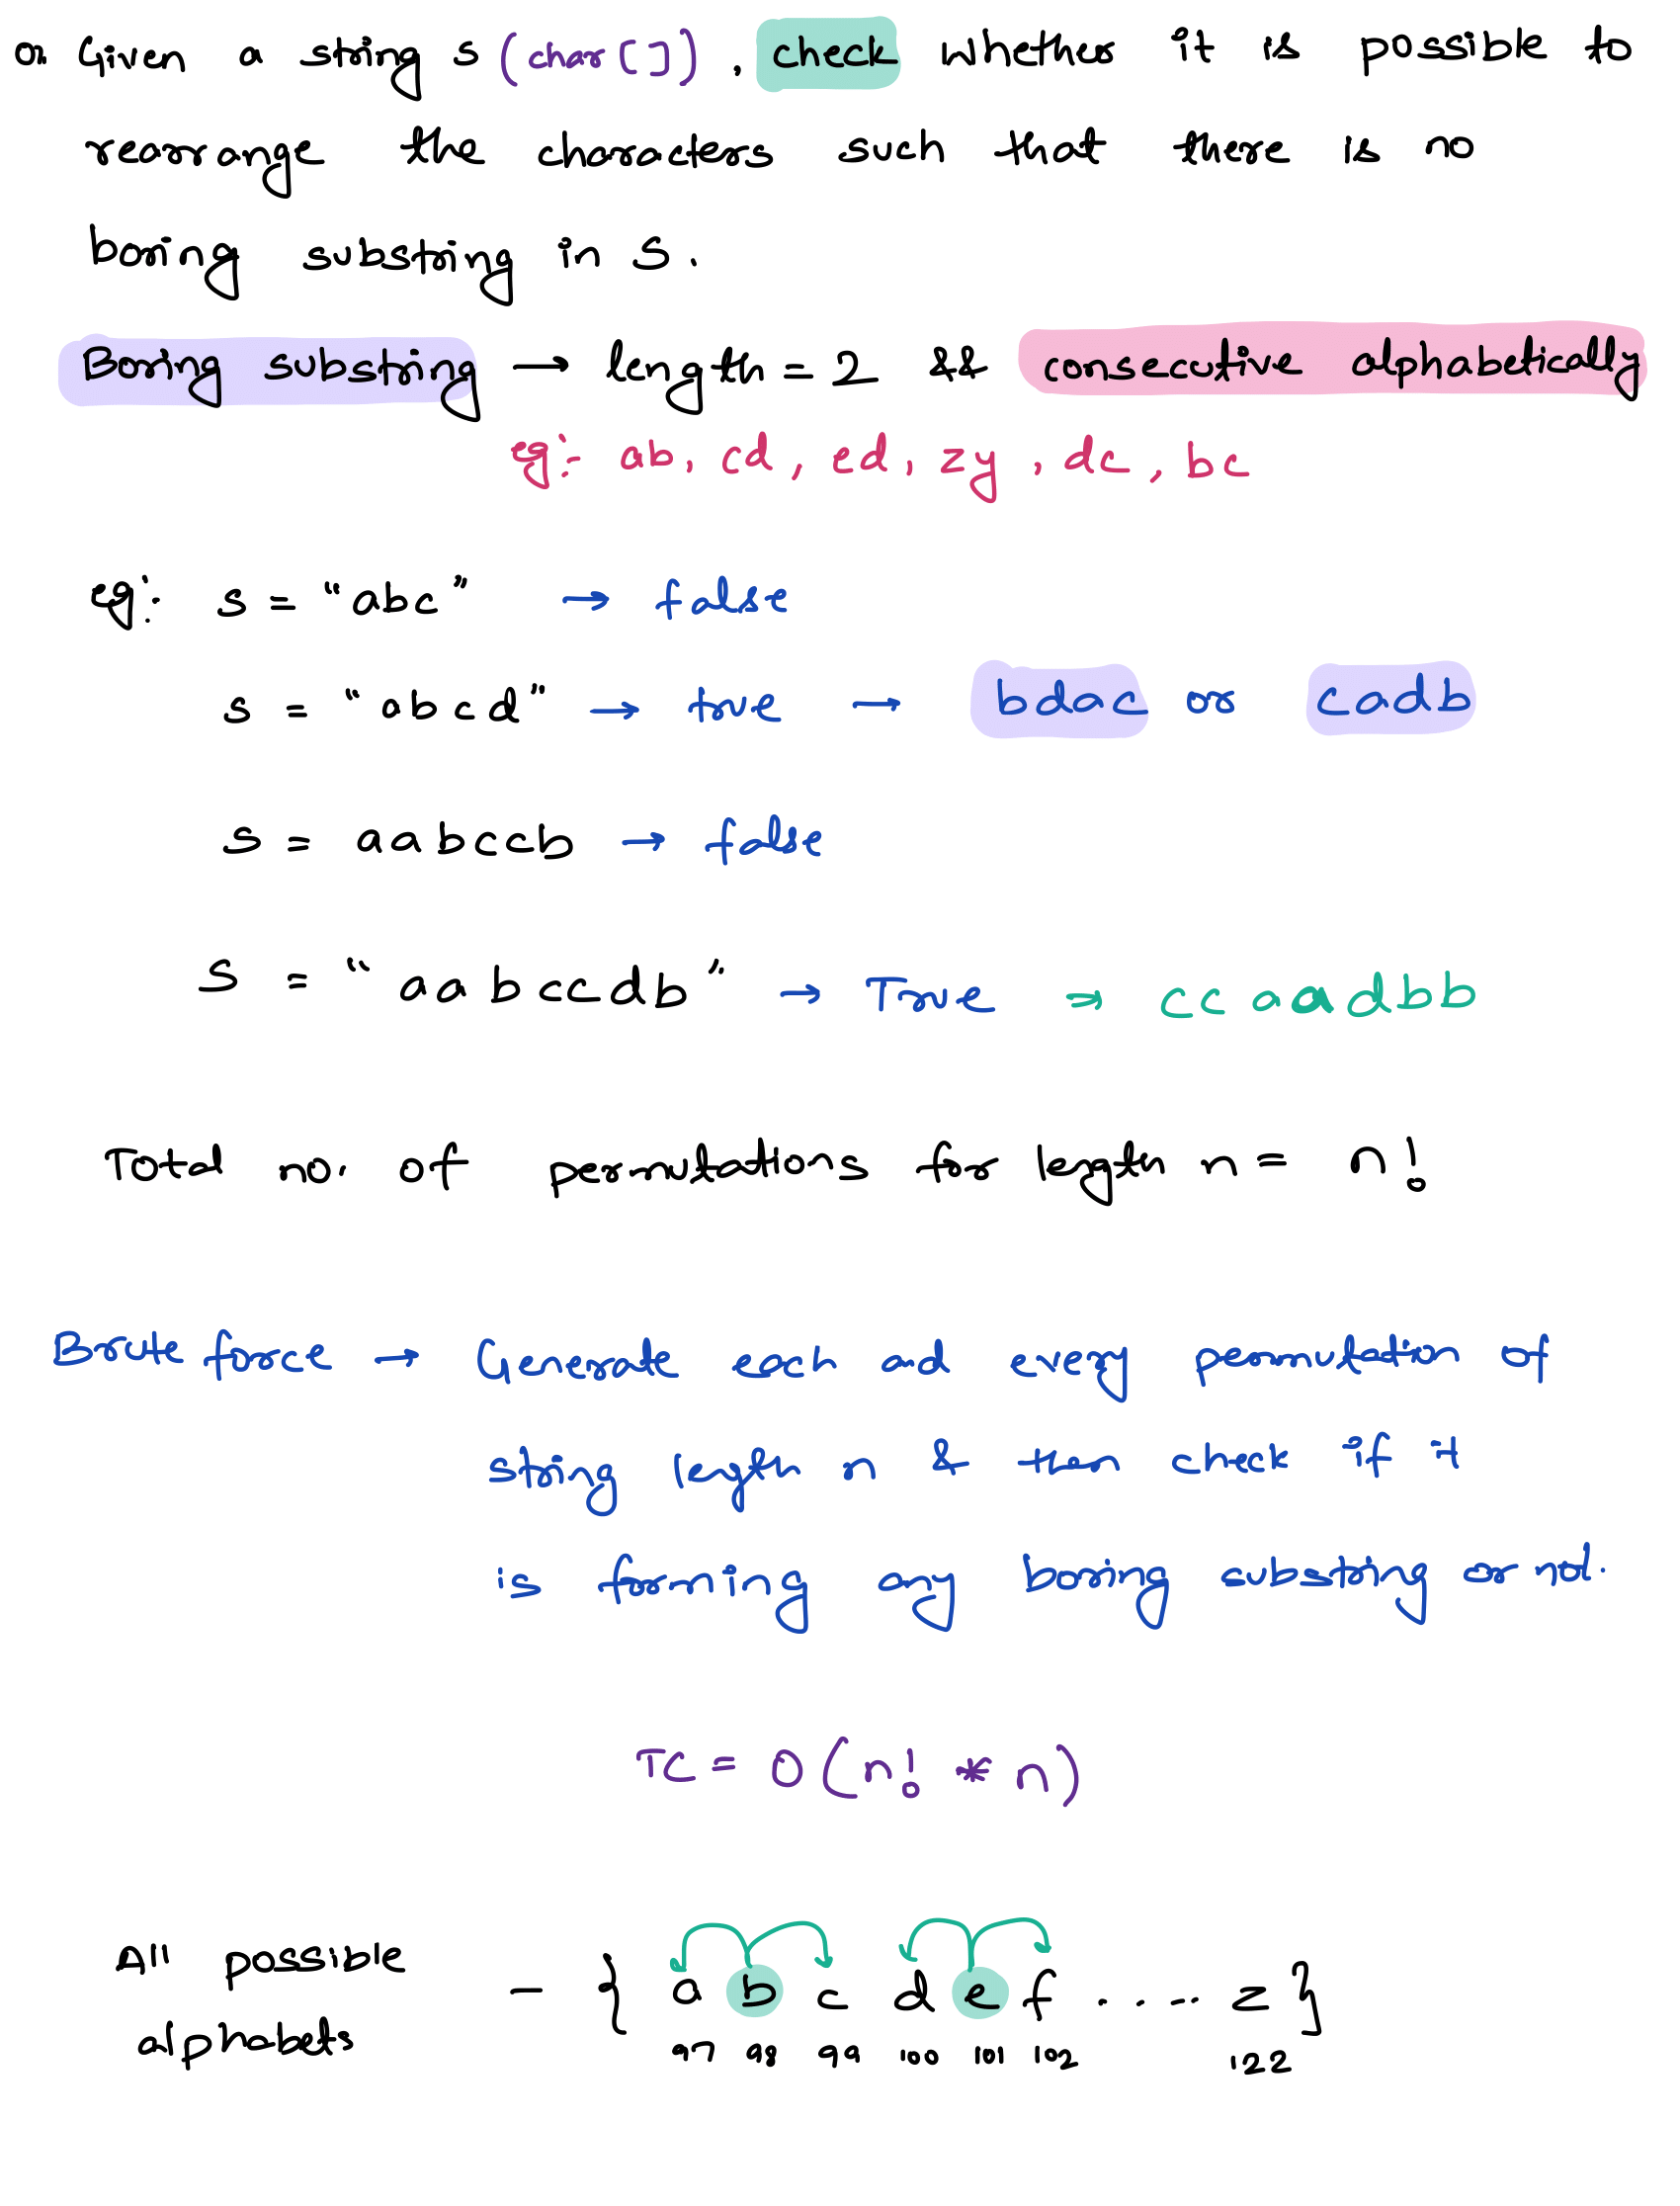 Q. Given a string s (char []), check whether it is possible to
rearrange the characters such that there is no
boring substring in S.
Boring substring → length = 2 && consecutive alphabetically
eg:- ab, cd, ed, zy, dc, bc
eg: s = "abc" → false
s = "abcd" → true → bdac or cadb
s = aabccb → false
S = "aabccdb" → True ⇒ ccaadbb
Total no. of permutations for length n = n!
Brute force → Generate each and every permutation of
string length n & then check if it
is forming any boring substring or not.
TC = O(n! * n)
All possible
alphabets - { a b c d e f ..... z }
97 98 99 100 101 102 122